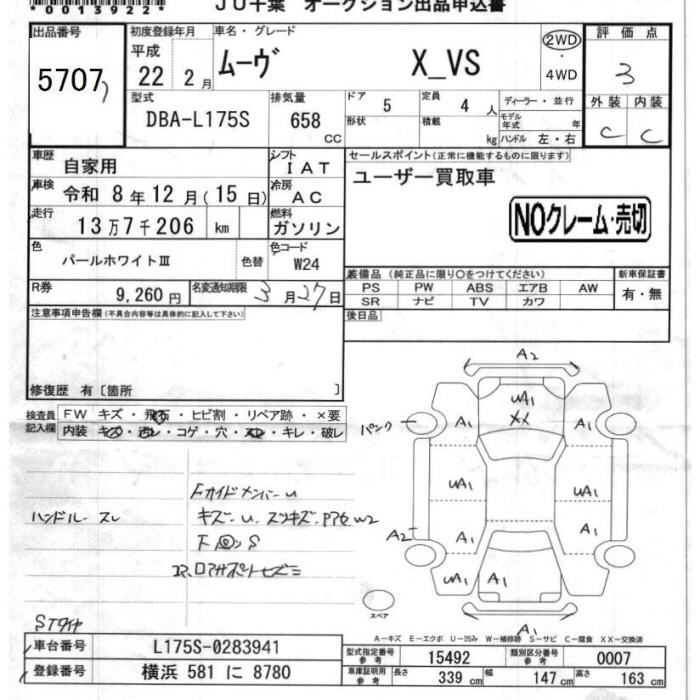 *0013922*
JU千葉 オークション出品申込書
出品番号
5707
初度登録年月
平成
22 2月
車名・グレード
ムーヴ X_VS
2WD
・
4WD
評価点
3
外装 内装
C C
型式
DBA-L175S
排気量
658
cc
ドア 5
定員 4 人
ディーラー・並行
形状
積載 kg
モデル年式 年
ハンドル 左・右
車歴 自家用
シフト IAT
車検 令和 8年12月(15日)
冷房 AC
走行 13万7千206 km
燃料 ガソリン
色 パールホワイトⅢ 色替
色コード W24
R券 9,260円
名変通知期限 3月27日
セールスポイント(正常に機能するものに限ります)
ユーザー買取車
NOクレーム・売切
装備品(純正品に限り○をつけてください)
新車保証書
PS PW ABS エアB AW
SR ナビ TV カワ
有・無
後日品
注意事項申告欄(不具合内容等は具体的に記入して下さい)
修復歴 有〔箇所 〕
検査員
記入欄
FW キズ・飛石・ヒビ割・リペア跡・×要
内装 キズ・汚レ・コゲ・穴・スレ・キレ・破レ
ハンドル スレ
Fガイドメンバーu
キズ・u.スリキズ.
W2
S
A2
uA1
XX
A1
A1
パンク
uA1
uA1
A2
A1
A1
uA1
A1
A1
スペア
Sタイヤ
A-キズ E-エクボ U-凹み W-補修跡 S-サビ C-腐食 XX-交換済
車台番号 L175S-0283941
登録番号 横浜 581 に 8780
型式指定番号
参考
15492
類別区分番号
参考
0007
車庫証明用
参考
長さ 339 cm
幅 147 cm
高さ 163 cm